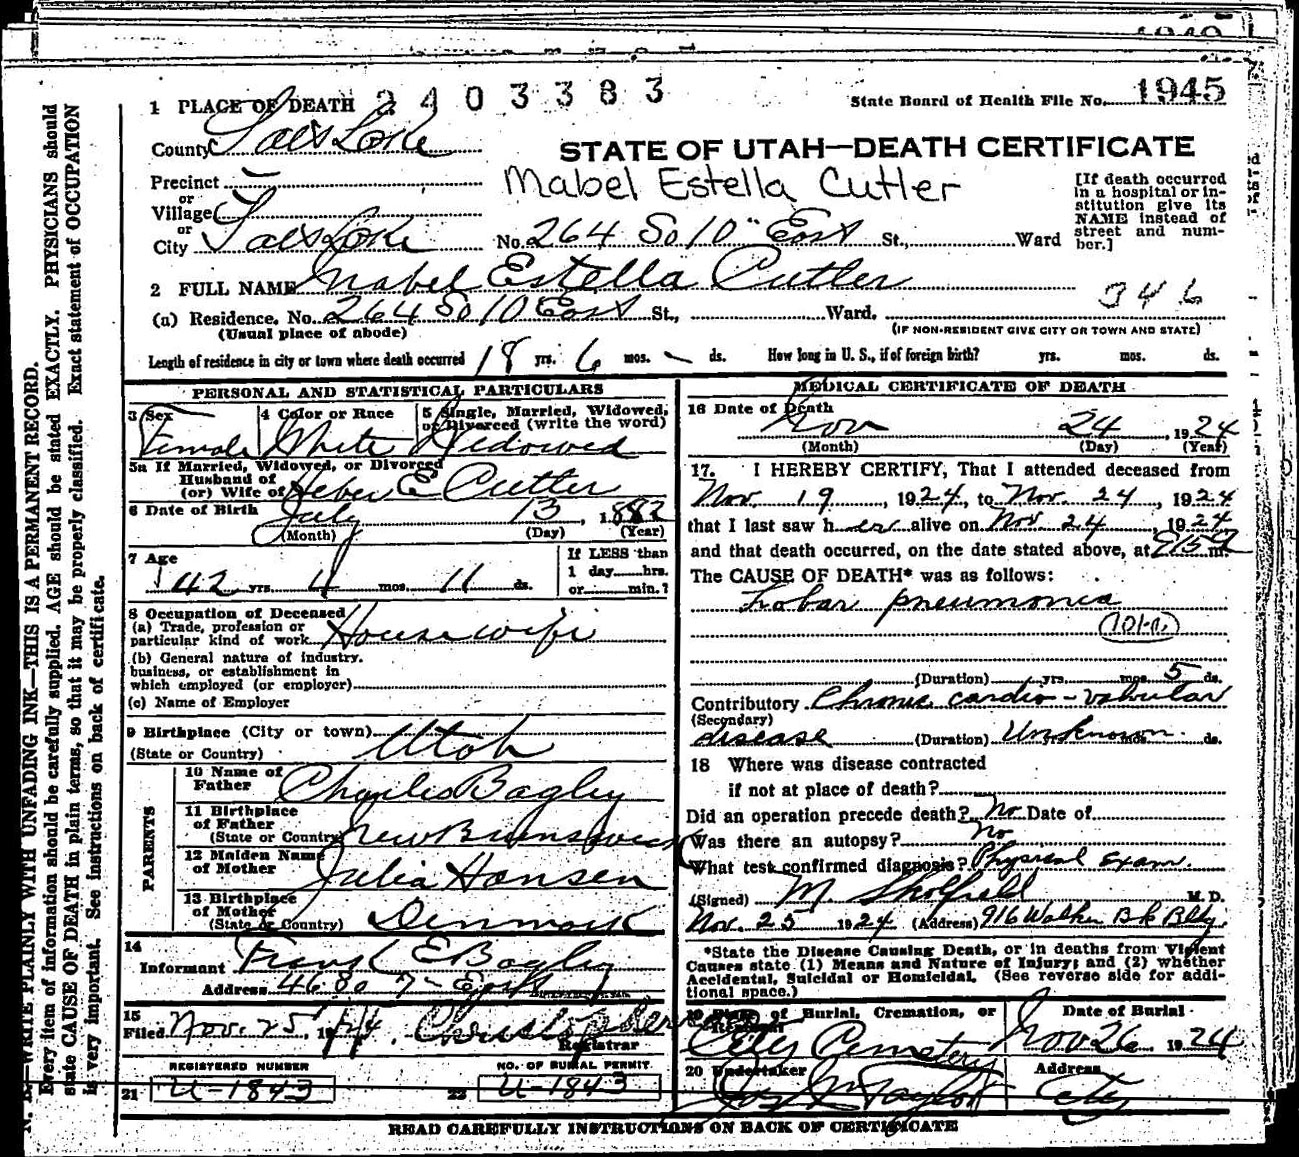 1 PLACE OF DEATH 2403383
State Board of Health File No. 1945
County Salt Lake
STATE OF UTAH—DEATH CERTIFICATE
Precinct
Mabel Estella Cutler
or
Village
or
City Salt Lake No. 264 So 10" East St., Ward
[If death occurred
in a hospital or in-
stitution give its
NAME instead of
street and num-
ber.]
2 FULL NAME Mabel Estella Cutler
346
(a) Residence. No. 264 So 10 East St., Ward.
(Usual place of abode)
(IF NON-RESIDENT GIVE CITY OR TOWN AND STATE)
Length of residence in city or town where death occurred 18 yrs. 6 mos. - ds. How long in U. S., if of foreign birth? yrs. mos. ds.
PERSONAL AND STATISTICAL PARTICULARS
3 Sex
Female
4 Color or Race
White
5 Single, Married, Widowed,
or Divorced (write the word)
Widowed
5a If Married, Widowed, or Divorced
Husband of
(or) Wife of Heber E Cutler
6 Date of Birth July 13, 1882
(Month) (Day) (Year)
7 Age
42 yrs. 4 mos. 11 ds.
If LESS than
1 day hrs.
or min.?
8 Occupation of Deceased
(a) Trade, profession or
particular kind of work Housewife
(b) General nature of industry.
business, or establishment in
which employed (or employer)
(c) Name of Employer
9 Birthplace (City or town)
(State or Country) Utah
PARENTS
10 Name of
Father Charles Bagley
11 Birthplace
of Father
(State or Country) New Brunswick
12 Maiden Name
of Mother Julia Hansen
13 Birthplace
of Mother
(State or Country) Denmark
14
Informant Frank E Bagley
Address 468 So 7- East
15
Filed Nov. 25, 1924.
Registrar
REGISTERED NUMBER
21 U-1843
NO. OF BURIAL PERMIT
22 U-1843
MEDICAL CERTIFICATE OF DEATH
16 Date of Death
Nov 24, 1924
(Month) (Day) (Year)
17. I HEREBY CERTIFY, That I attended deceased from
Nov. 19, 1924, to Nov. 24, 1924
that I last saw her alive on Nov. 24, 1924
and that death occurred, on the date stated above, at m.
The CAUSE OF DEATH* was as follows:
Lobar pneumonia
(Duration) yrs. mos. 5 ds.
Contributory Chronic cardio-valvular
(Secondary)
disease (Duration) Unknown mos. ds.
18 Where was disease contracted
if not at place of death?
Did an operation precede death? No Date of
Was there an autopsy? No
What test confirmed diagnosis? Physical Exam.
(Signed) M. M. D.
Nov. 25 1924 (Address) 916 Walker Bk Bldg.
*State the Disease Causing Death, or in deaths from Violent
Causes state (1) Means and Nature of Injury; and (2) whether
Accidental, Suicidal or Homicidal. (See reverse side for addi-
tional space.)
19 Place of Burial, Cremation, or
City Cemetery
Date of Burial
Nov 26 1924
20 Undertaker
Jos Wm Taylor
Address
City
READ CAREFULLY INSTRUCTIONS ON BACK OF CERTIFICATE
N. B.—WRITE PLAINLY WITH UNFADING INK—THIS IS A PERMANENT RECORD.
Every item of information should be carefully supplied. AGE should be stated EXACTLY. PHYSICIANS should
state CAUSE OF DEATH in plain terms, so that it may be properly classified. Exact statement of OCCUPATION
is very important. See instructions on back of certificate.